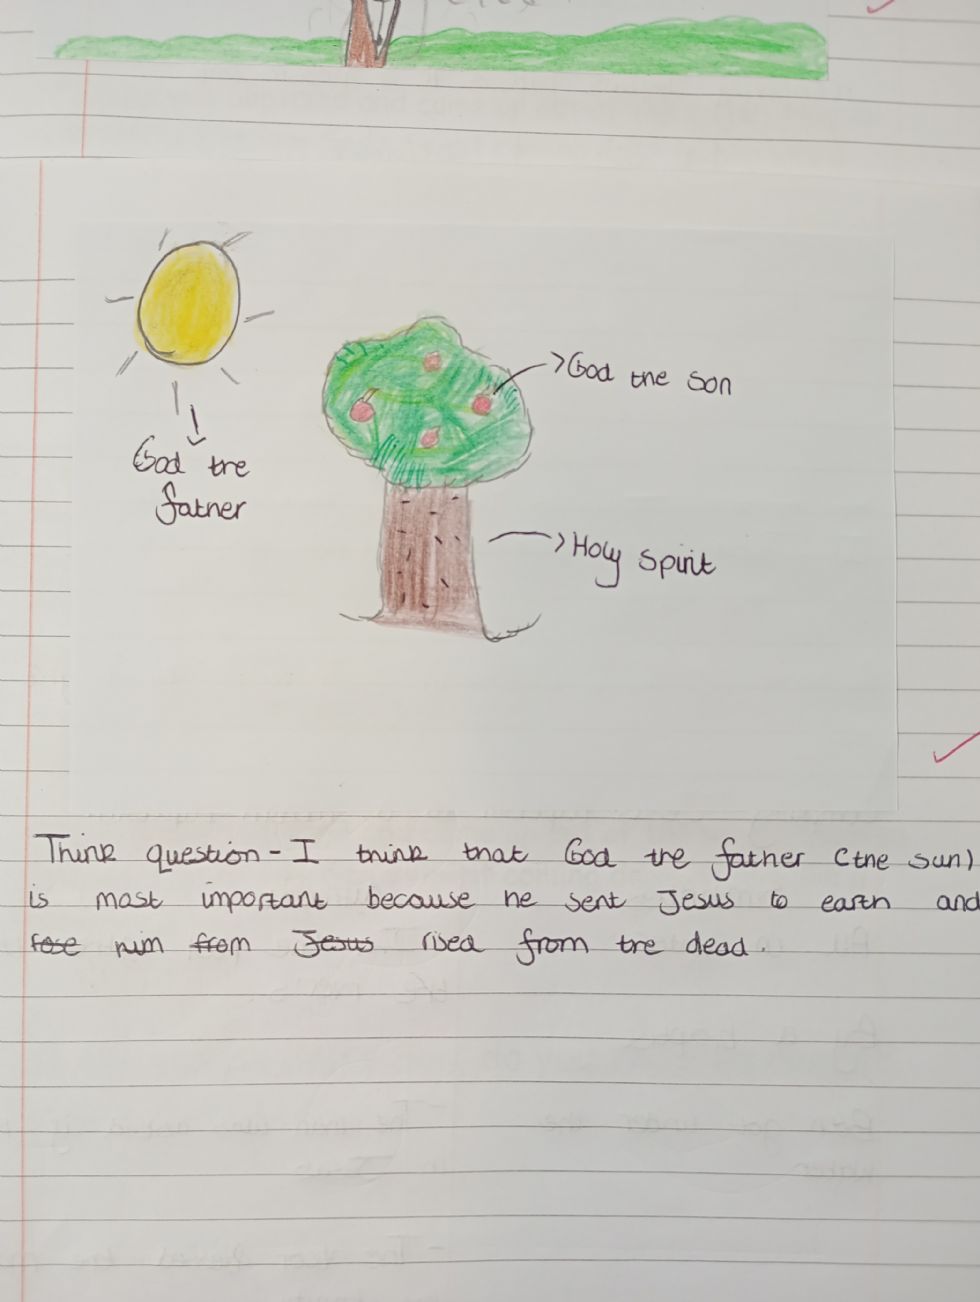 God the son
God the
father
Holy spirit
Think question - I think that God the father (the sun)
is most important because he sent Jesus to earth and
rose him from Jesus rised from the dead.